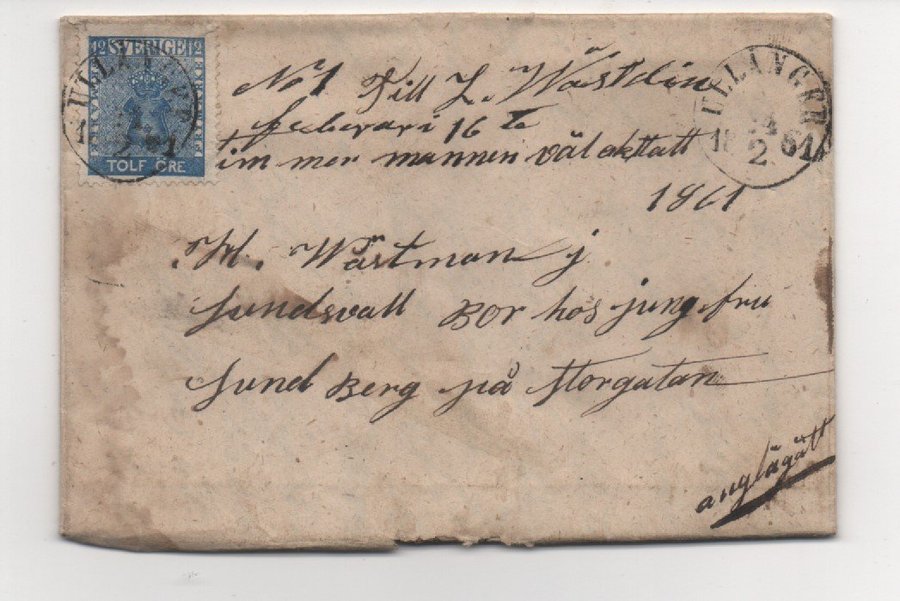 12 SVERIGE 12
TOLF ÖRE
ULLÅNGER
2
1861
ULLÅNGER
24
2
18 61
N:o 1 Till L. Wästdin
feberari 16 te
timmer mannen väl aktatt
1861
M. Wästman j
Sundsvall Bor hos jungfru
Sund Berg på Storgatan
anglägätt